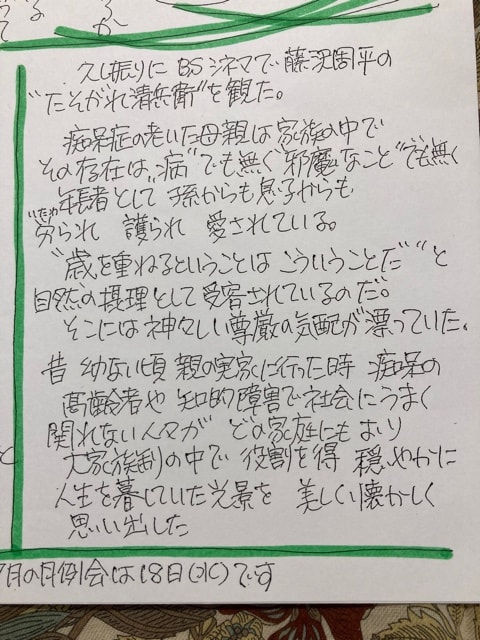 る
か
て
久し振りに BSシネマで 藤沢周平の
"たそがれ清兵衛"を観た。
痴呆症の老いた母親は 家族の中で
その存在は"病"でも無く"邪魔なこと"でも無く
年長者として 孫からも息子からも
いたわ
労られ 護られ 愛されている。
"歳を重ねるということは こういうことだ"と
自然の摂理として受容されているのだ。
そこには神々しい尊厳の気配が漂っていた。
昔 幼ない頃 親の実家に行った時 痴呆の
高齢者や 知的障害で社会にうまく
関れない人々が どの家庭にもおり
大家族制の中で 役割を得 穏やかに
人生を暮していた光景を 美しく懐かしく
思い出した
と
月の月例会は18日(水)です